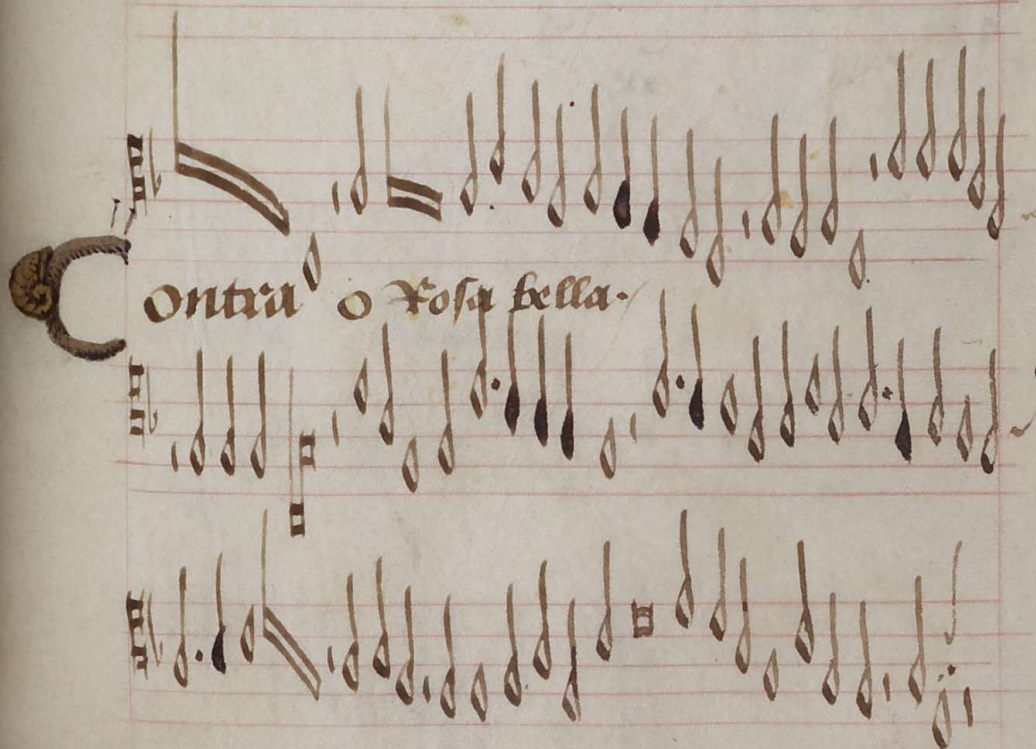 Contra o Rosa bella.